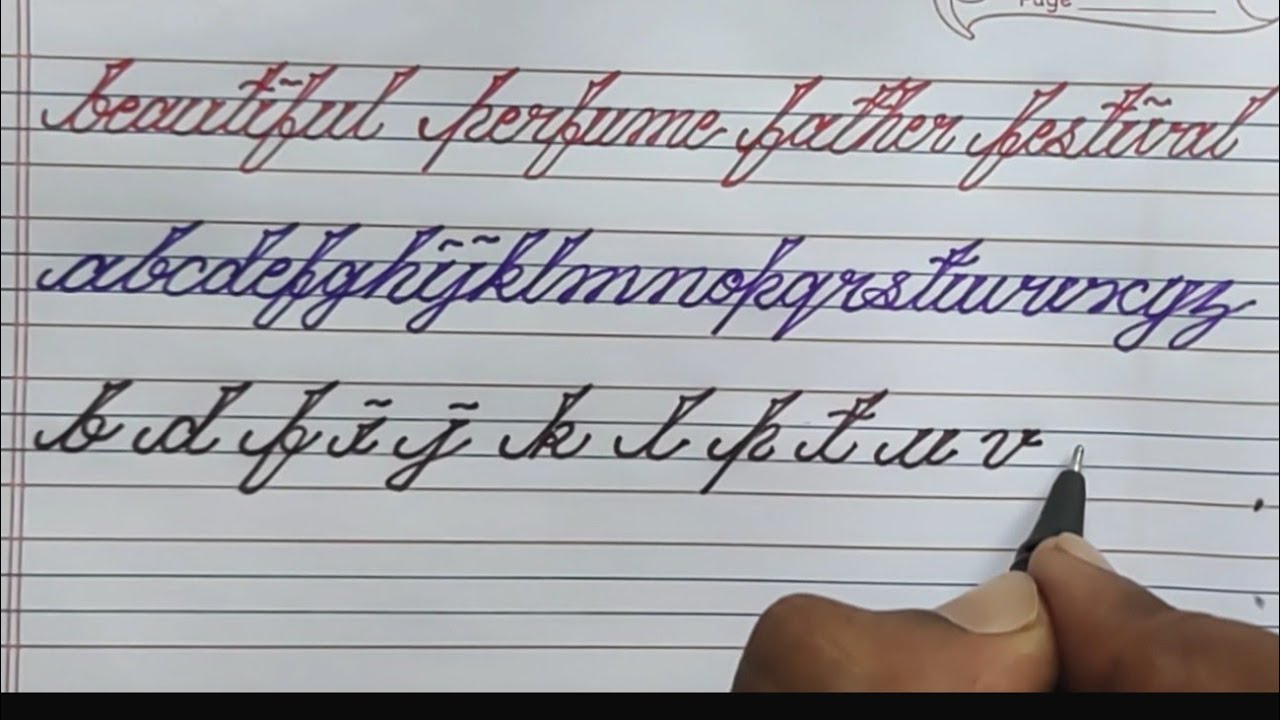 Page
beautiful perfume father festival
abcdefghijklmnopqrstuvwxyz
b d f i j k l p t u v